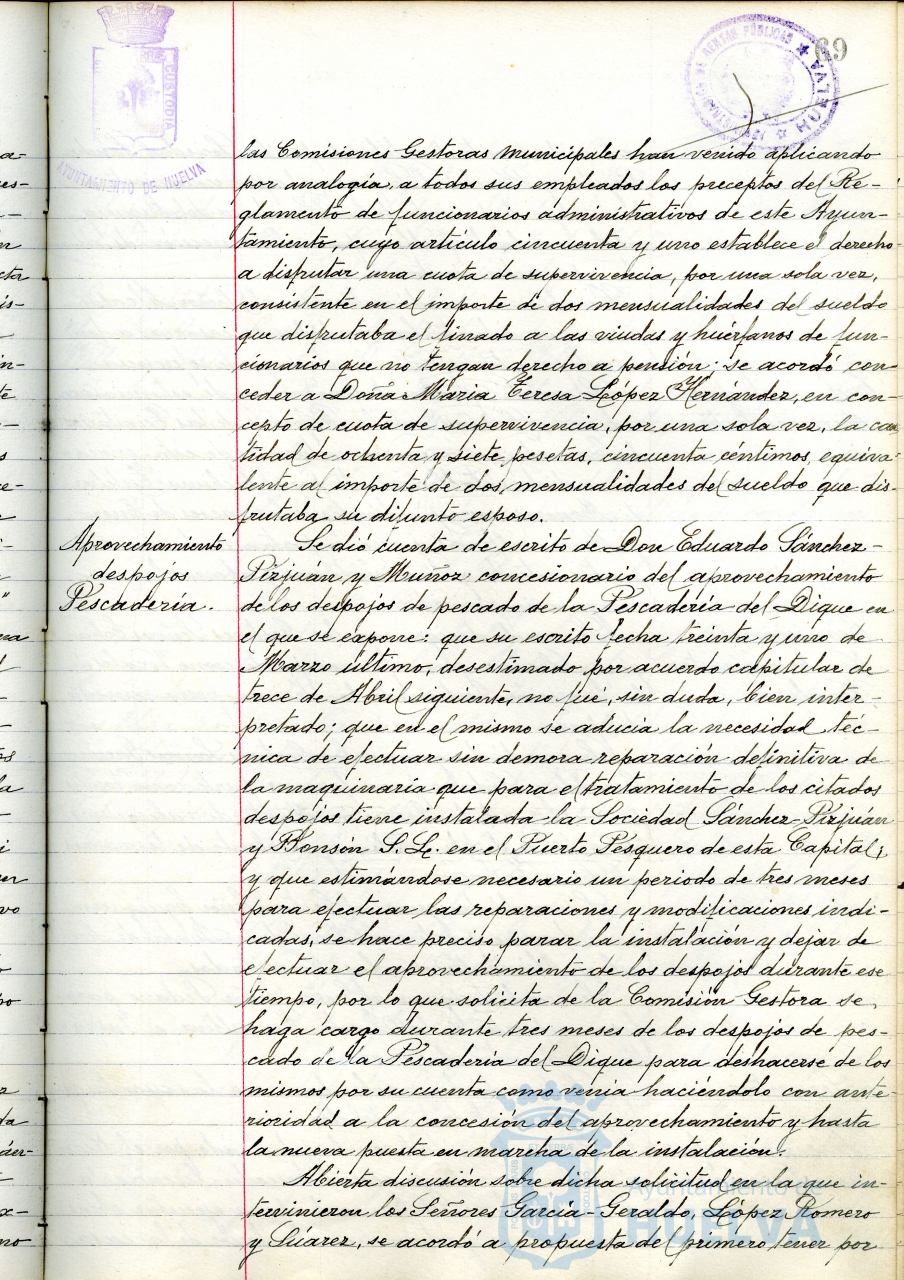 69
CUSTODIA
AYUNTAMIENTO DE HUELVA
HUELVA
las Comisiones Gestoras municipales han venido aplicando
por analogía, a todos sus empleados los preceptos del Re-
glamento de funcionarios administrativos de este Ayun-
tamiento, cuyo artículo cincuenta y uno establece el derecho
a disfrutar una cuota de supervivencia, por una sola vez,
consistente en el importe de dos mensualidades del sueldo
que disfrutaba el finado a las viudas y huérfanos de fun-
cionarios que no tengan derecho a pensión; se acordó con-
ceder a Doña Maria Teresa López Hernández, en con-
cepto de cuota de supervivencia, por una sola vez, la can
tidad de ochenta y siete pesetas, cincuenta céntimos, equiva-
lente al importe de dos mensualidades del sueldo que dis-
frutaba su difunto esposo.
Aprovechamiento
despojos
Pescadería.
Se dió cuenta de escrito de Don Eduardo Sánchez-
Pizjuán y Muñoz concesionario del aprovechamiento
de los despojos de pescado de la Pescadería del Dique en
el que se expone: que su escrito fecha treinta y uno de
Marzo último, desestimado por acuerdo capitular de
trece de Abril siguiente, no fué, sin duda, bien inter-
pretado; que en el mismo se aducía la necesidad téc-
nica de efectuar sin demora reparación definitiva de
la maquinaria que para el tratamiento de los citados
despojos tiene instalada la Sociedad Sánchez-Pizjuán
y Ponsón S. L. en el Puerto Pesquero de esta Capital;
y que estimándose necesario un periodo de tres meses
para efectuar las reparaciones y modificaciones indi-
cadas, se hace preciso parar la instalación y dejar de
efectuar el aprovechamiento de los despojos durante ese
tiempo, por lo que solicita de la Comisión Gestora se
haga cargo durante tres meses de los despojos de pes-
cado de la Pescadería del Dique para deshacerse de los
mismos por su cuenta como venía haciéndolo con ante-
rioridad a la concesión del aprovechamiento y hasta
la nueva puesta en marcha de la instalación.
Abierta discusión sobre dicha solicitud en la que in-
tervinieron los Señores García-Geraldo, López Romero
y Súarez, se acordó a propuesta del primero tener por
Ayuntamiento de
HUELVA